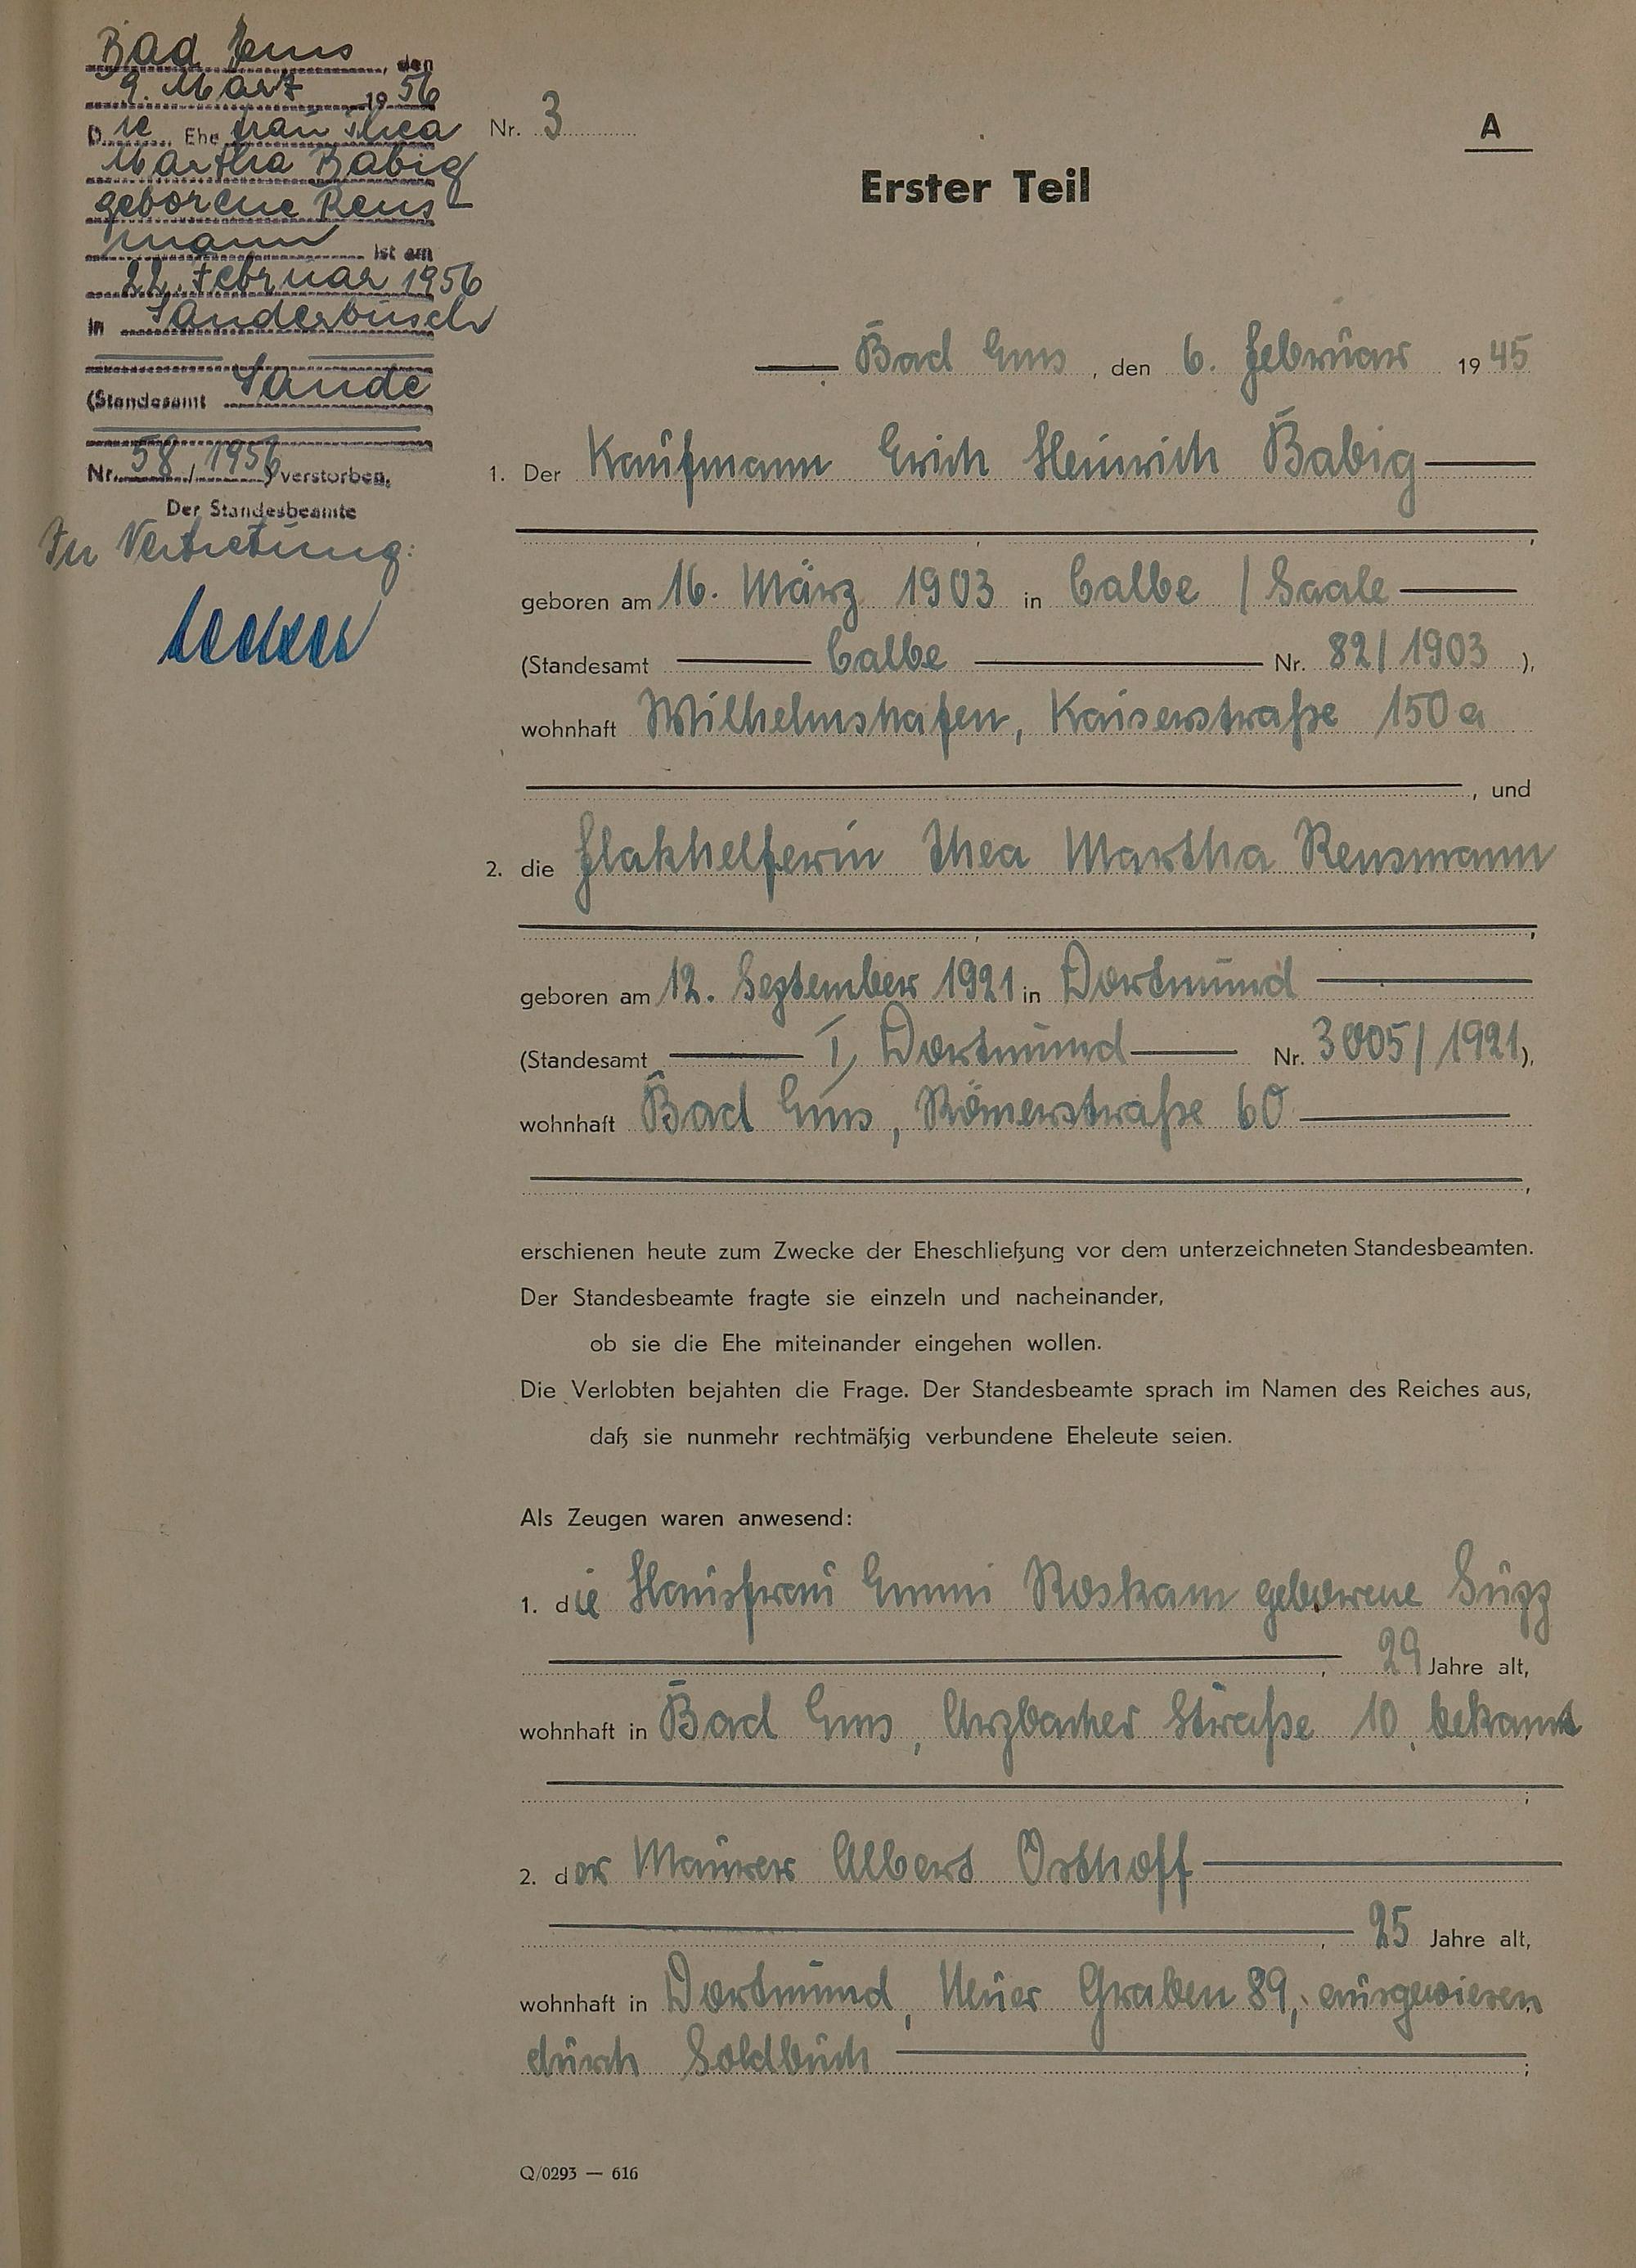 Bad Ems, den
9. März 1956
Die Ehefrau Thea
Martha Babig
geborene Rens-
mann ist am
22. Februar 1956
in Sanderbusch
(Standesamt Sande
Nr. 58/1956) verstorben.
Der Standesbeamte
In Vertretung:
Nr. 3
A
Erster Teil
Bad Ems, den 6. Februar 1945
1. Der Kaufmann Erich Heinrich Babig
geboren am 16. März 1903 in Calbe / Saale
(Standesamt Calbe Nr. 82/1903),
wohnhaft Wilhelmshafen, Kaiserstraße 150a
, und
2. die Flakhelferin Thea Martha Rensmann
geboren am 12. September 1921 in Dortmund
(Standesamt I, Dortmund Nr. 3005/1921),
wohnhaft Bad Ems, Römerstraße 60
,
erschienen heute zum Zwecke der Eheschließung vor dem unterzeichneten Standesbeamten.
Der Standesbeamte fragte sie einzeln und nacheinander,
ob sie die Ehe miteinander eingehen wollen.
Die Verlobten bejahten die Frage. Der Standesbeamte sprach im Namen des Reiches aus,
daß sie nunmehr rechtmäßig verbundene Eheleute seien.
Als Zeugen waren anwesend:
1. die Hausfrau Emmi Roskam geborene
, 29 Jahre alt,
wohnhaft in Bad Ems, Arzbacher Straße 10, bekannt
;
2. der Maurer Albert Osthoff
, 25 Jahre alt,
wohnhaft in Dortmund, Neuer Graben 89, ausgewiesen
durch Soldbuch ;
Q/0293 — 616